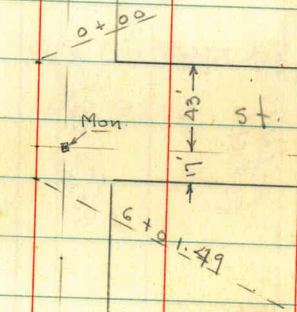 0+00
43'
St.
Mon.
17'
6+01.49